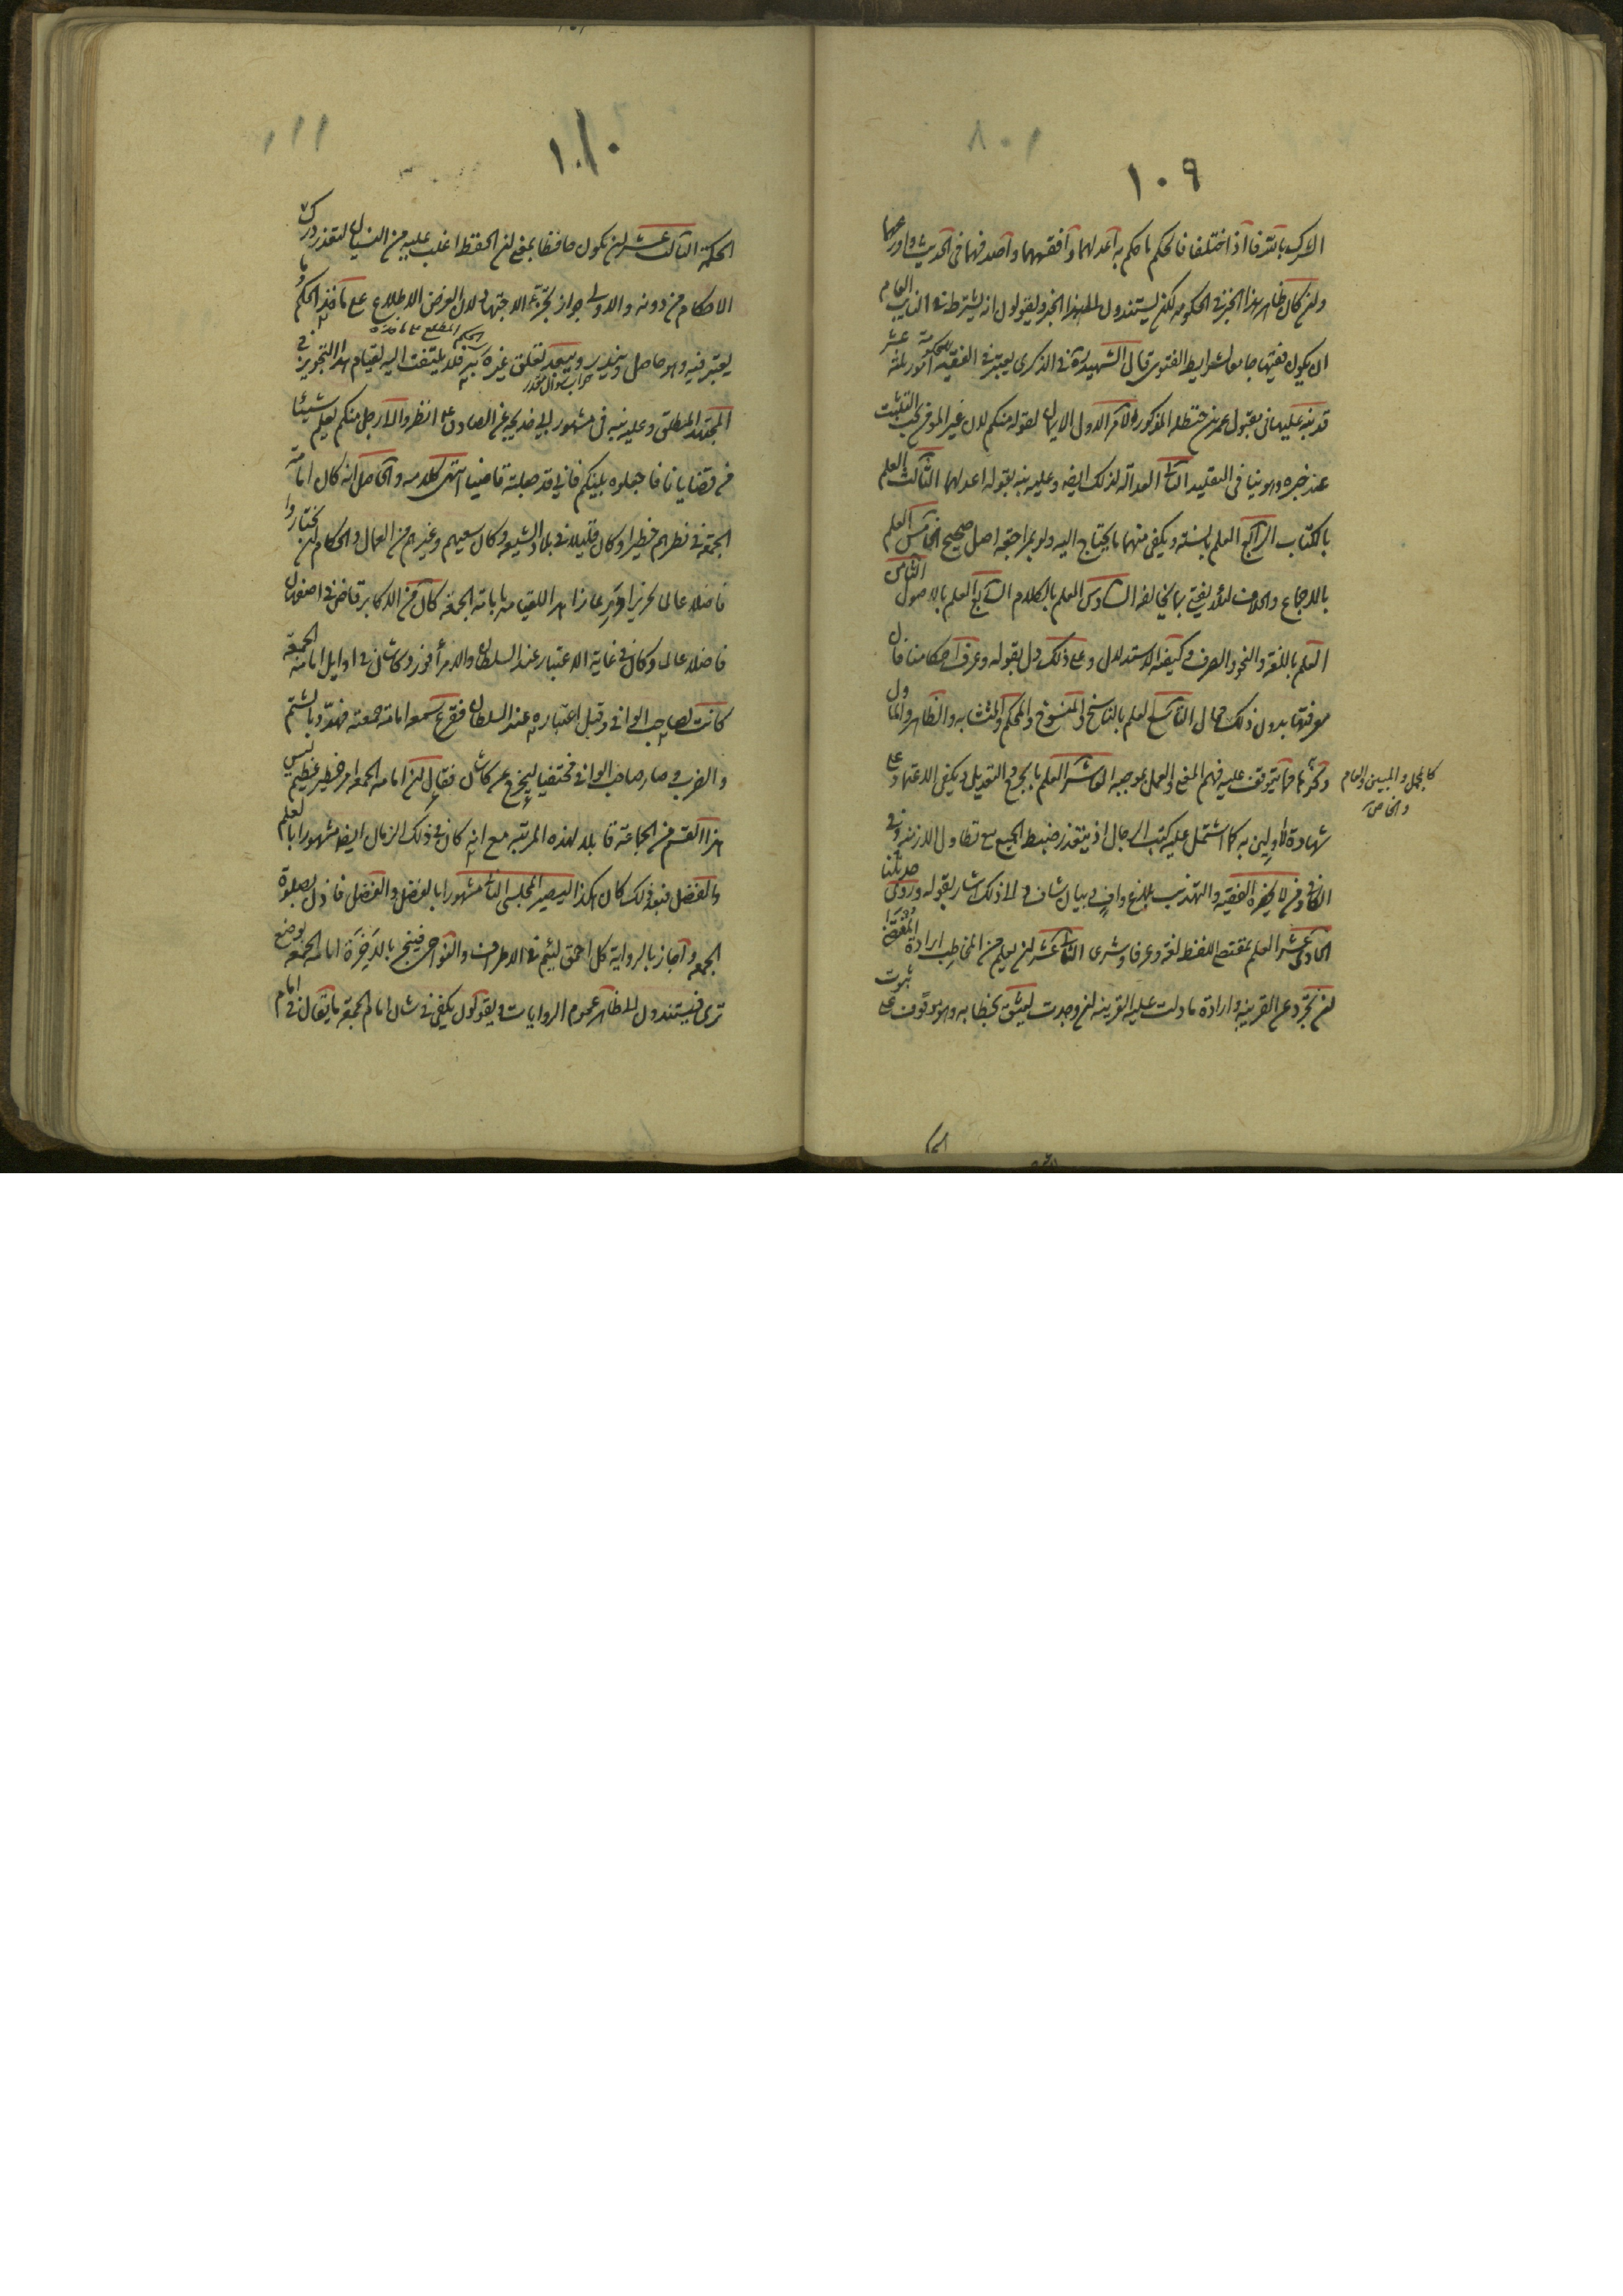 ١٠٩
الاشراك بالله فاذا اختلفا فالحكم ما حكم به اعدلهما وافقههما واصدقهما فى الحديث واورعهما
ولئن كان ظاهر هذا الخبر فى الحكومة لكن يستندون الى هذا الخبر ويقولون انه يشترط فى النايب العام
ان يكون فقيها جامعا لشرايط الفتوى قال الشهيد ره فى الذكرى يعتبر فى الفقيه امور ثلثة عشر
قد نبه عليها فى مقبول عمر بن حنظلة المذكورة الاول الايمان لقوله منكم لان غير المؤمن يجب التثبت
عند خبره وهو ينافى التقليد الثانى العدالة لذلك ايضا وعليه نبه بقوله اعدلهما الثالث العلم
بالكتاب الرابع العلم بالسنة ويكفى منهما ما يحتاج اليه ولو بمراجعة اصل صحيح الخامس العلم
بالاجماع والخلاف لئلا يفتى بما يخالفه السادس العلم بالكلام السابع العلم بالاصول الثامن
العلم باللغة والنحو والصرف وكيفية الاستدلال وعلى ذلك دل بقوله وعرف احكامنا فان
معرفتها بدون ذلك محال التاسع العلم بالناسخ والمنسوخ والمحكم والمتشابه والظاهر والماول
ونحوها مما يتوقف عليه فهم المعنى والعمل بموجبه العاشر العلم بالجرح والتعديل ويكفى الاعتماد على
كالمجمل والمبين والعام
والخاص
شهادة الاولين به كما اشتمل عليه كتب الرجال اذ يتعذر ضبط الجميع مع تطاول الازمنة وفى
الكافى ومن لا يحضره الفقيه والتهذيب بلاغ واف وبيان شاف والى ذلك اشار بقوله وروى حديثنا
الحادى عشر العلم بمقتضى اللفظ لغة وعرفا وشرعا الثانى عشر ان يعلم من المخاطب ارادة المقتضى
ان تجرد عن القرينة وارادة ما دلت عليه القرينة ان وجدت ليثق بخطابه وهو موقوف على ثبوت
الحكمة
١١٠
الحكمة الثالث عشر ان يكون حافظا بمعنى ان الحفظ اغلب عليه من النسيان لتعذر درك
الاحكام من دونه والاولى جواز تجزى الاجتهاد لان الغرض الاطلاع على ماخذ الحكم وما
يعتبر فيه وهو حاصل ويندر ويبعد تعلق غيره به فلا يلتفت اليه لقيام هذا التجويز فى
المجتهد المطلق وعليه نبه فى مشهور ابى خديجه عن الصادق ع انظروا الى رجل منكم يعلم شيئا
من قضايانا فاجعلوه بينكم فانى قد جعلته قاضيا انتهى كلامه والحاصل انه كان امامة
الجمعة فى نظرهم خطيرا وكان قليلا فى بلاد الشيعة وكان سعيهم وغيرهم من العمال والحكام ان يختاروا
فاضلا عالما نحريرا ورعا زاهدا للقيام بامامة الجمعة كان من الاكابر قاض فى اصفهان
فاضلا عالما وكان فى غاية الاعتبار عند السلطان والامراء فورد كاشان فى اوايل امامة الجمعة
كانت لصاحب الوافى وقبل اعتباره عند السلطان فقرع سمعه امامته جمعة فهدد بالشتم
والضرب وصار صاحب الوافى مختفيا ليخرج عن كاشان فقال ان امامة الجمعة امر خطير عظيم ليس
هذا القسم من الجماعة قابلا لهذه المرتبة مع انه كان فى ذلك الزمان ايضا مشهورا بالعلم
والفضل فبعد ذلك كان هكذا ليصير المجلسى الثانى مشهورا بالفضل والفضل فاذن لصلوة
الجمعة واجاز بالرواية كل احمق لئيم فى الاطراف والنواحى فينجر بالاخرة امامة الجمعة بوضع
ترى فيستندون الى ظاهر عموم الروايات ويقولون يكفى فى شان امام الجمعة ما يقال فى امام